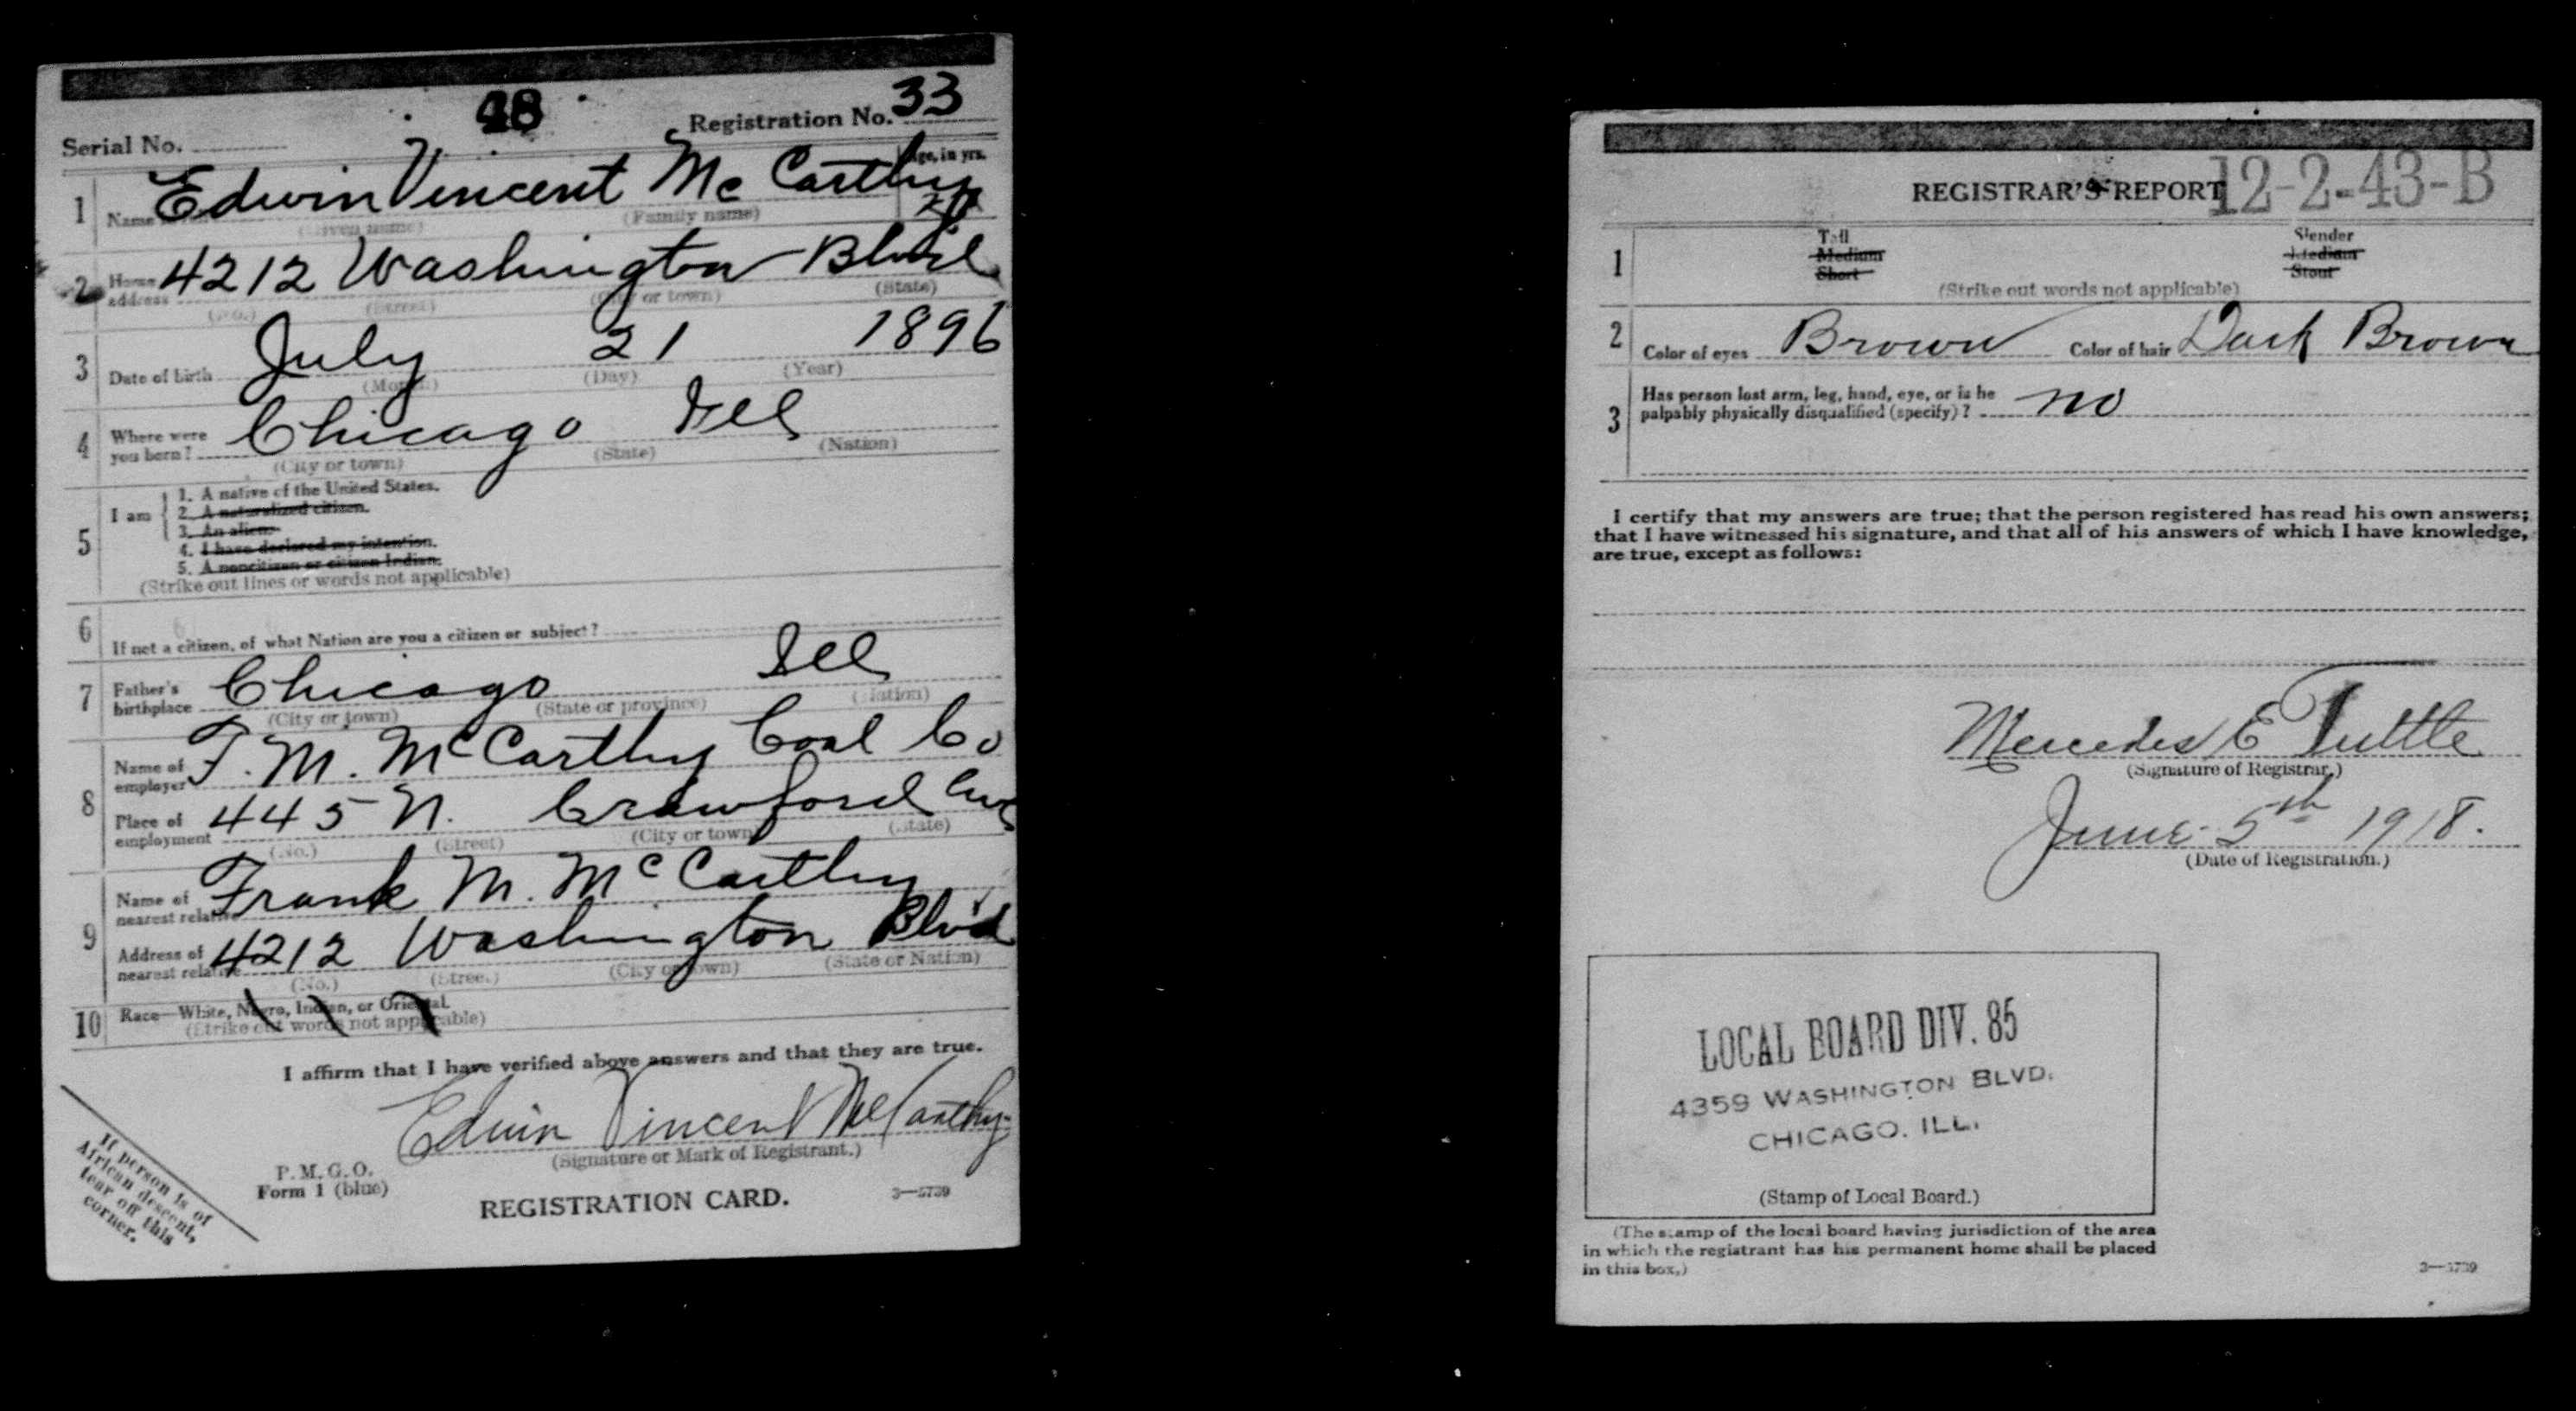 48
Serial No. Registration No. 33
1 Name Edwin Vincent Mc Carthy Age, in yrs.
(Given name) (Family name)
2 Home address 4212 Washington Blvd
(No.) (Street) (City or town) (State)
3 Date of birth July 21 1896
(Month) (Day) (Year)
4 Where were you born? Chicago Ill
(City or town) (State) (Nation)
5 I am
1. A native of the United States.
2. A naturalized citizen.
3. An alien.
4. I have declared my intention.
5. A noncitizen or citizen Indian.
(Strike out lines or words not applicable)
6 If not a citizen, of what Nation are you a citizen or subject?
7 Father's birthplace Chicago Ill
(City or town) (State or province) (Nation)
8 Name of employer F. M. McCarthy Coal Co
Place of employment 445 N. Crawford Ave
(No.) (Street) (City or town) (State)
9 Name of nearest relative Frank M. McCarthy
Address of nearest relative 4212 Washington Blvd
(No.) (Street) (City or town) (State or Nation)
10 Race—White, Negro, Indian, or Oriental.
(Strike out words not applicable)
I affirm that I have verified above answers and that they are true.
Edwin Vincent McCarthy
(Signature or Mark of Registrant.)
P. M. G. O.
Form 1 (blue)
REGISTRATION CARD.
3—5739
If person is of
African descent,
tear off this
corner.
REGISTRAR'S REPORT 12-2-43-B
1 Tall Slender
Medium Medium
Short Stout
(Strike out words not applicable)
2 Color of eyes Brown Color of hair Dark Brown
3 Has person lost arm, leg, hand, eye, or is he
palpably physically disqualified (specify)? no
I certify that my answers are true; that the person registered has read his own answers;
that I have witnessed his signature, and that all of his answers of which I have knowledge,
are true, except as follows:
Mercedes E Tuttle
(Signature of Registrar.)
June 5th 1918.
(Date of Registration.)
LOCAL BOARD DIV. 85
4359 WASHINGTON BLVD.
CHICAGO. ILL.
(Stamp of Local Board.)
(The stamp of the local board having jurisdiction of the area
in which the registrant has his permanent home shall be placed
in this box.)
3—5739